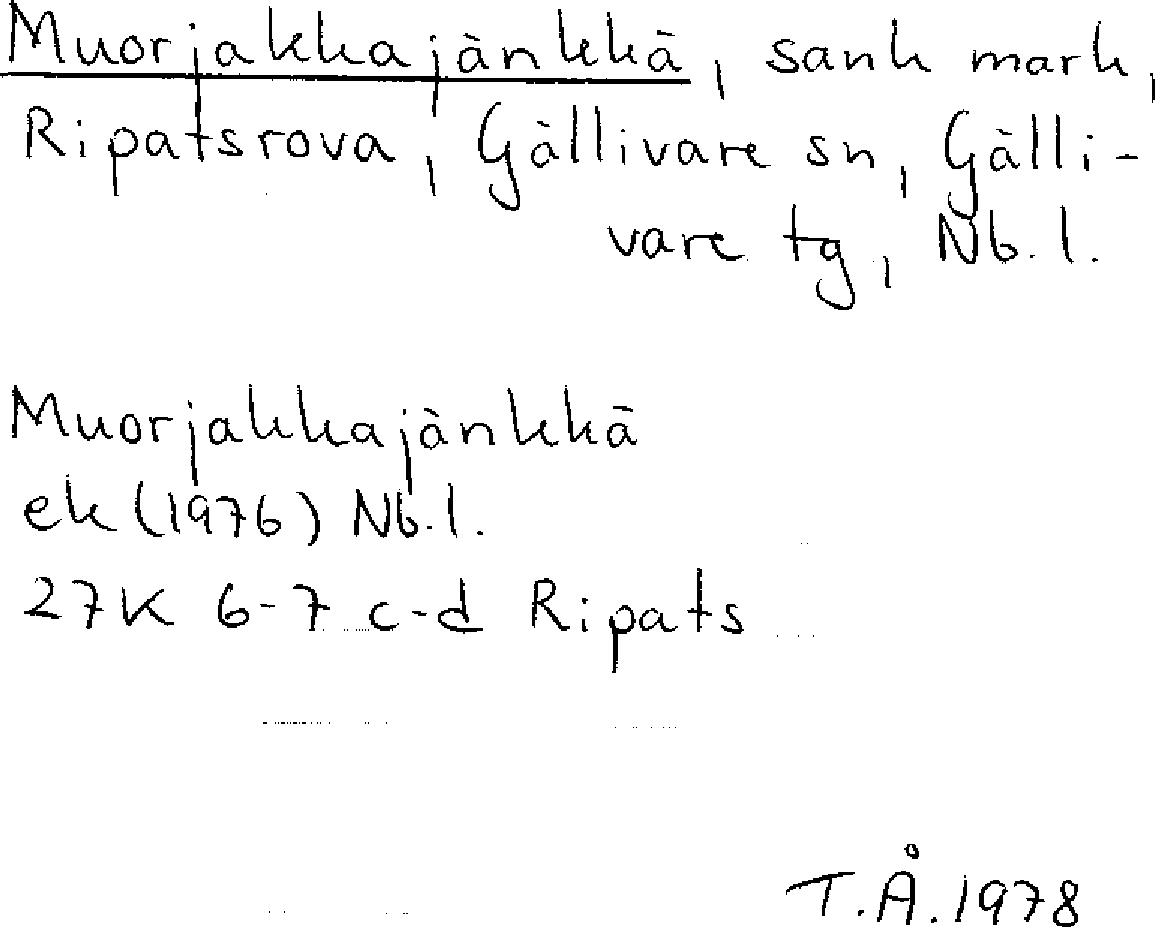 Muorjakkajänkkä, sank mark,
Ripatsrova, Gällivare sn, Gälli-
vare tg, Nb.l.
Muorjakkajänkkä
ek (1976) Nb.l.
27K 6-7 c-d Ripats
T.Å. 1978